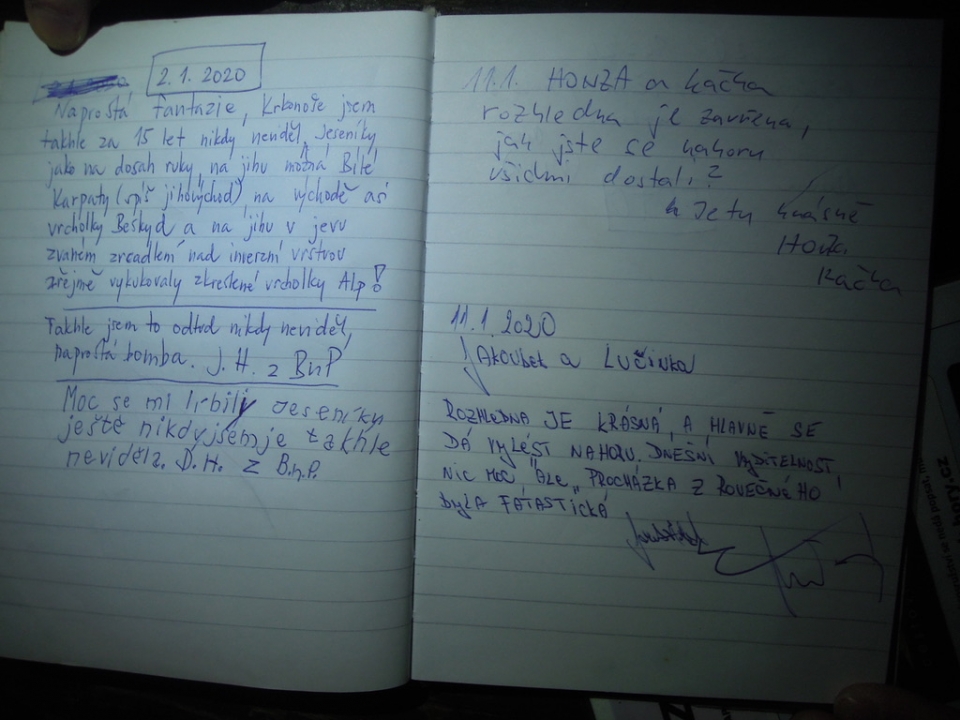 2.1.2020
Naprostá fantazie, Krkonoše jsem
takhle za 15 let nikdy neviděl, Jeseníky
jako na dosah ruky, na jihu možná Bílé
Karpaty (spíš jihovýchod) na východě asi
vrcholky Beskyd a na jihu v jevu
zvaném zrcadlení nad inverzní vrstvou
zřejmě vykukovaly zkreslené vrcholky Alp!
Takhle jsem to odtud nikdy neviděl,
naprostá bomba. J.H. z BnP
Moc se mi lrbily Jeseníky
ještě nikdy jsem je takhle
neviděla. D.H. z B.n.P.
11.1. HONZA a Kačka
rozhledna je zavřena,
jak jste se nahoru
všichni dostali?
Je tu krásně
Honza
Kačka
11.1.2020
Jakoubek a Lučinka
ROZHLEDNA JE KRÁSNÁ, A HLAVNĚ SE
DÁ VYLÉST NAHORU. DNEŠNÍ VYDITELNOST
NIC MOC, ALE PROCHÁZKA Z ROVEČNÉHO
BYLA FÁTASTICKÁ